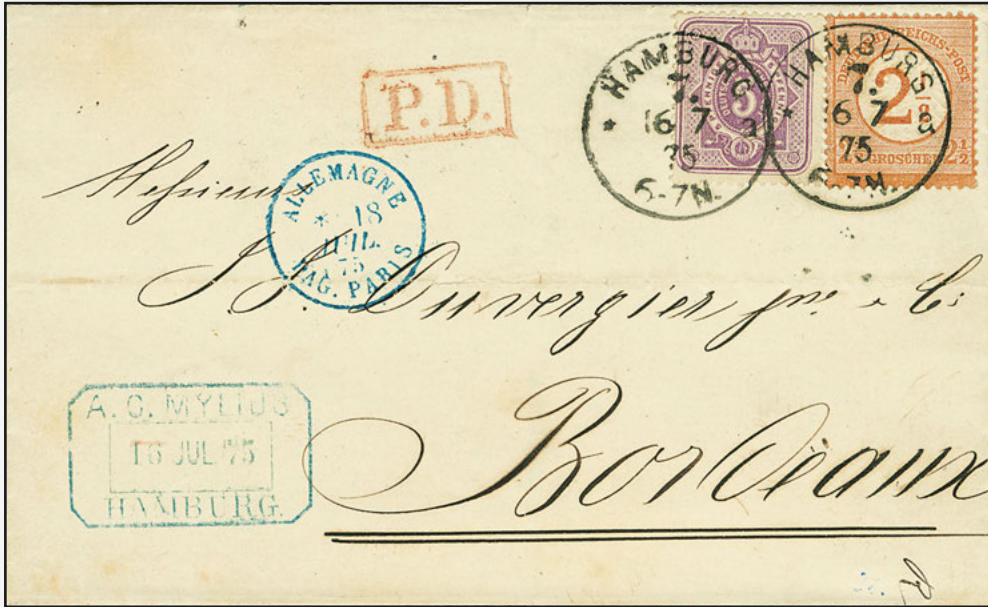 P.D.
HAMBURG
7.
* 16 7 a
75
6-7N.
HAMBURG
7.
* 16 7 a
75
6-7N.
5
DEUTSCHE REICHS-POST
2½
2½
GROSCHEN
Messieurs
ALLEMAGNE
* 18
JUIL.
75
BAG. PARIS
J. F. Duvergier jne & Co:
Bordeaux
A. C. MYLIUS
16 JUL 75
HAMBURG.